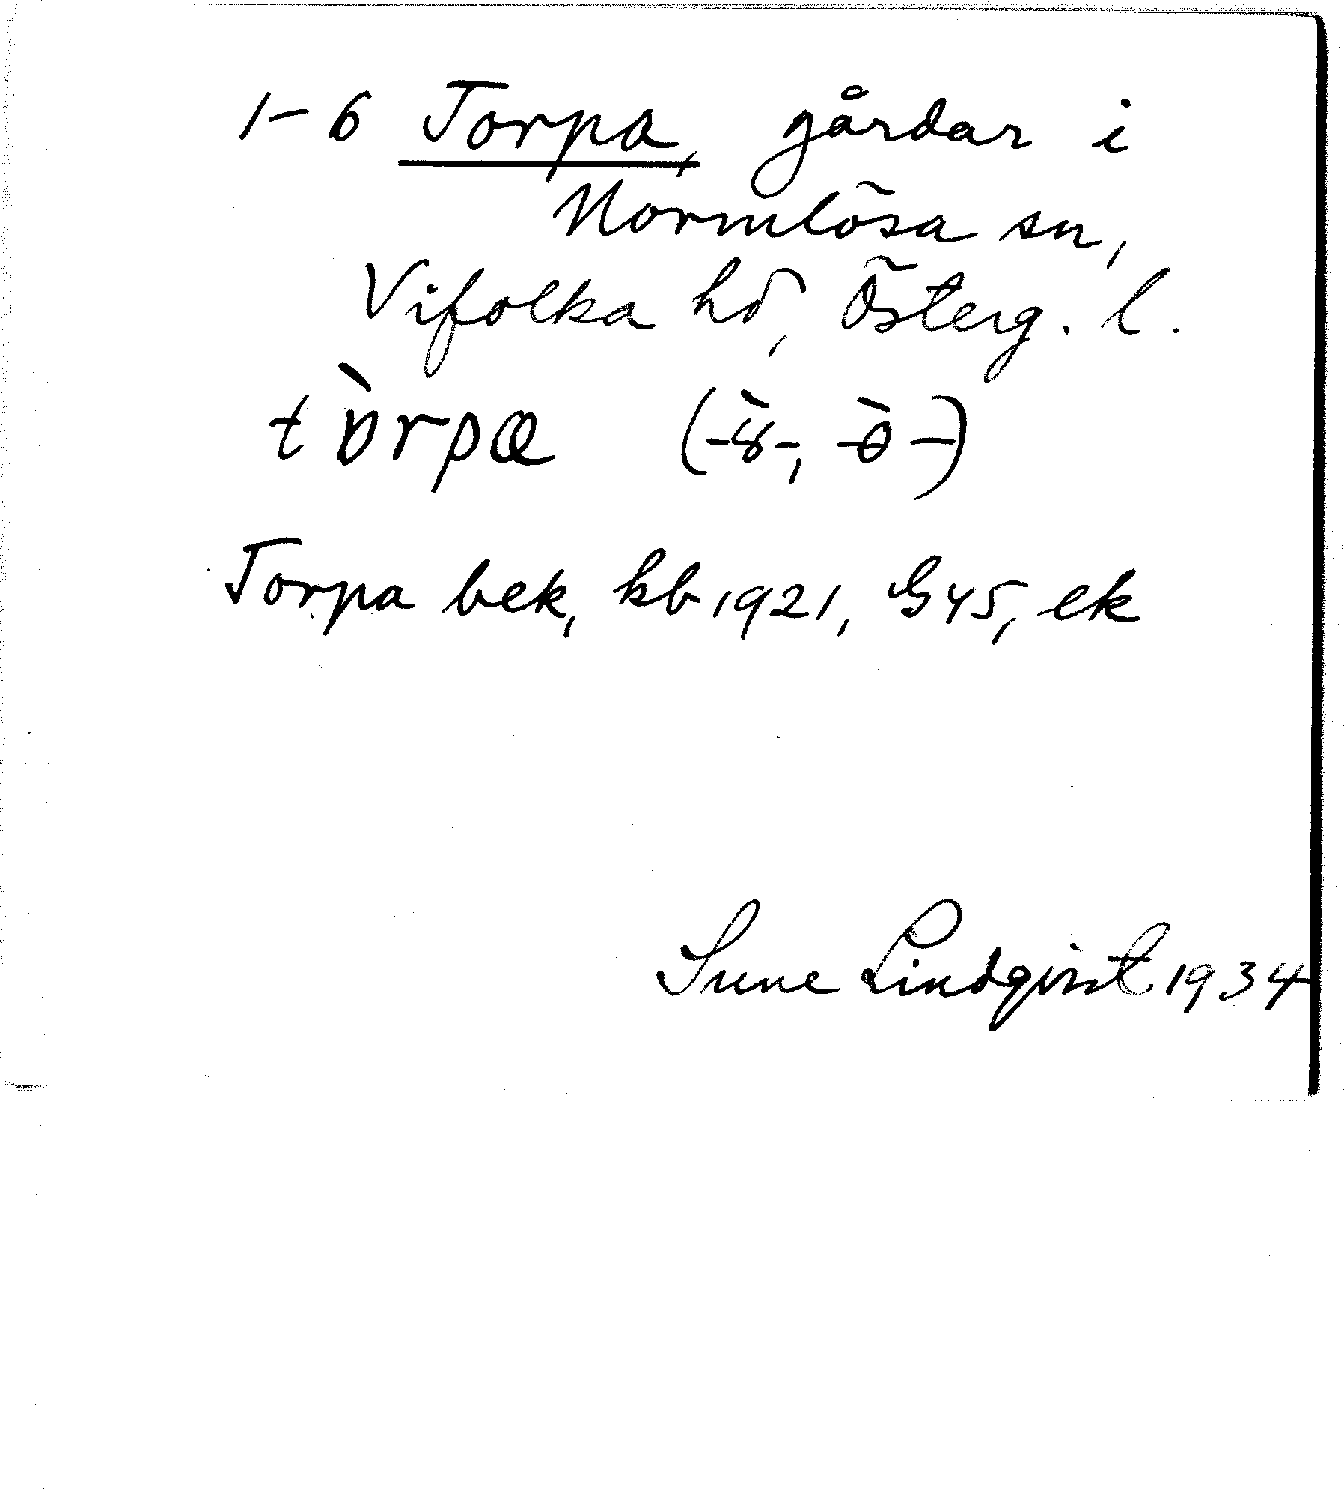 1-6 Torpa, gårdar i
Normlösa sn,
Vifolka hd, Österg. l.
tòrpa (-ò̈-, -ò-)
Torpa bek, kb 1921, G45, ek
Sune Lindqvist 1934